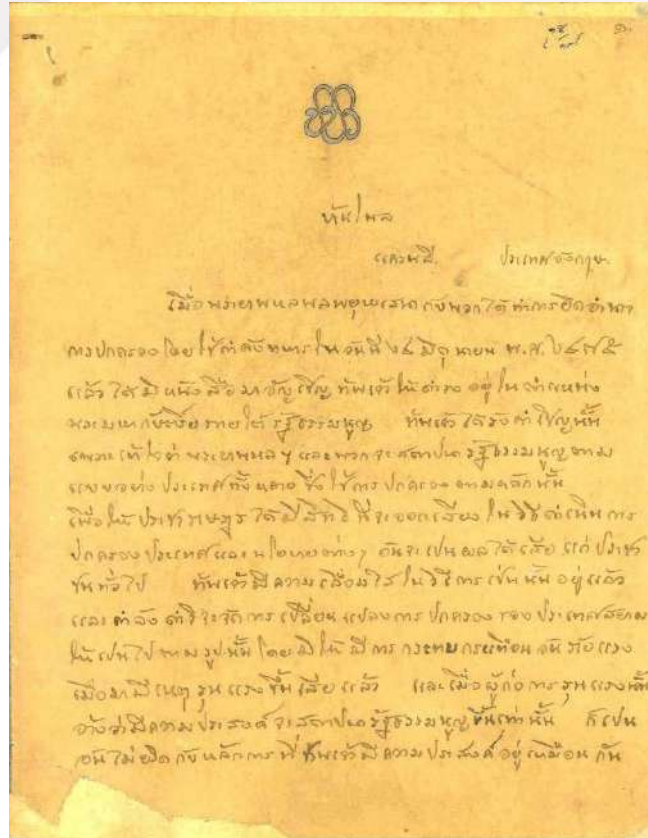 บ้านโนล
แครนลี. ประเทศอังกฤษ.
เมื่อพระยาพหลพลพยุหเสนากับพวกได้ทำการยึดอำนาจ
การปกครองโดยใช้กำลังทหารในวันที่ ๒๔ มิถุนายน พ.ศ. ๒๔๗๕
แล้ว ได้มีหนังสือมาอัญเชิญข้าพเจ้าให้ดำรงอยู่ในตำแหน่ง
พระมหากษัตริย์ภายใต้รัฐธรรมนูญ ข้าพเจ้าได้รับคำเชิญนั้น
เพราะเข้าใจว่าพระยาพหลฯ และพวกจะสถาปนารัฐธรรมนูญตาม
แบบอย่างประเทศทั้งหลายซึ่งใช้การปกครองตามหลักนั้น
เพื่อให้ประชาราษฎรได้มีสิทธิที่จะออกเสียงในวิธีดำเนินการ
ปกครองประเทศและนโยบายต่างๆ อันจะเป็นผลได้เสียแก่ประชา
ชนทั่วไป ข้าพเจ้ามีความเลื่อมใสในวิธีการเช่นนั้นอยู่แล้ว
และกำลังดำริจะจัดการเปลี่ยนแปลงการปกครองของประเทศสยาม
ให้เป็นไปตามรูปนั้น โดยมิให้มีการกระทบกระเทือนอันร้ายแรง
เมื่อมามีเหตุรุนแรงขึ้นเสียแล้ว และเมื่อผู้ก่อการรุนแรงนั้น
อ้างว่ามีความประสงค์จะสถาปนารัฐธรรมนูญขึ้นเท่านั้น ก็เป็น
อันไม่ผิดกับหลักการที่ข้าพเจ้ามีความประสงค์อยู่เหมือนกัน